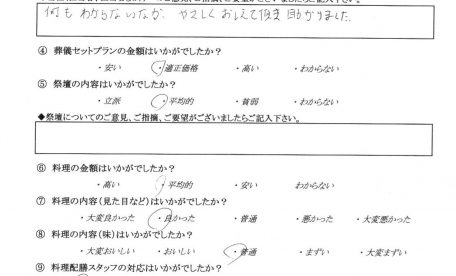 何もわからないなか、やさしくおしえて頂き助かりました。
④ 葬儀セットプランの金額はいかがでしたか？
・安い ・適正価格 ・高い ・わからない
⑤ 祭壇の内容はいかがでしたか？
・立派 ・平均的 ・貧弱 ・わからない
◆祭壇についてのご意見、ご指摘、ご要望がございましたらご記入下さい。
⑥ 料理の金額はいかがでしたか？
・高い ・平均的 ・安い わからない
⑦ 料理の内容（見た目など）はいかがでしたか？
・大変良かった ・良かった ・普通 ・悪かった ・大変悪かった
⑧ 料理の内容（味）はいかがでしたか？
・大変おいしい ・おいしい ・普通 ・まずい ・大変まずい
⑨ 料理配膳スタッフの対応はいかがでしたか？